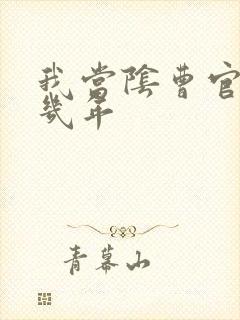 我當陰曹官
幾年
青幕山